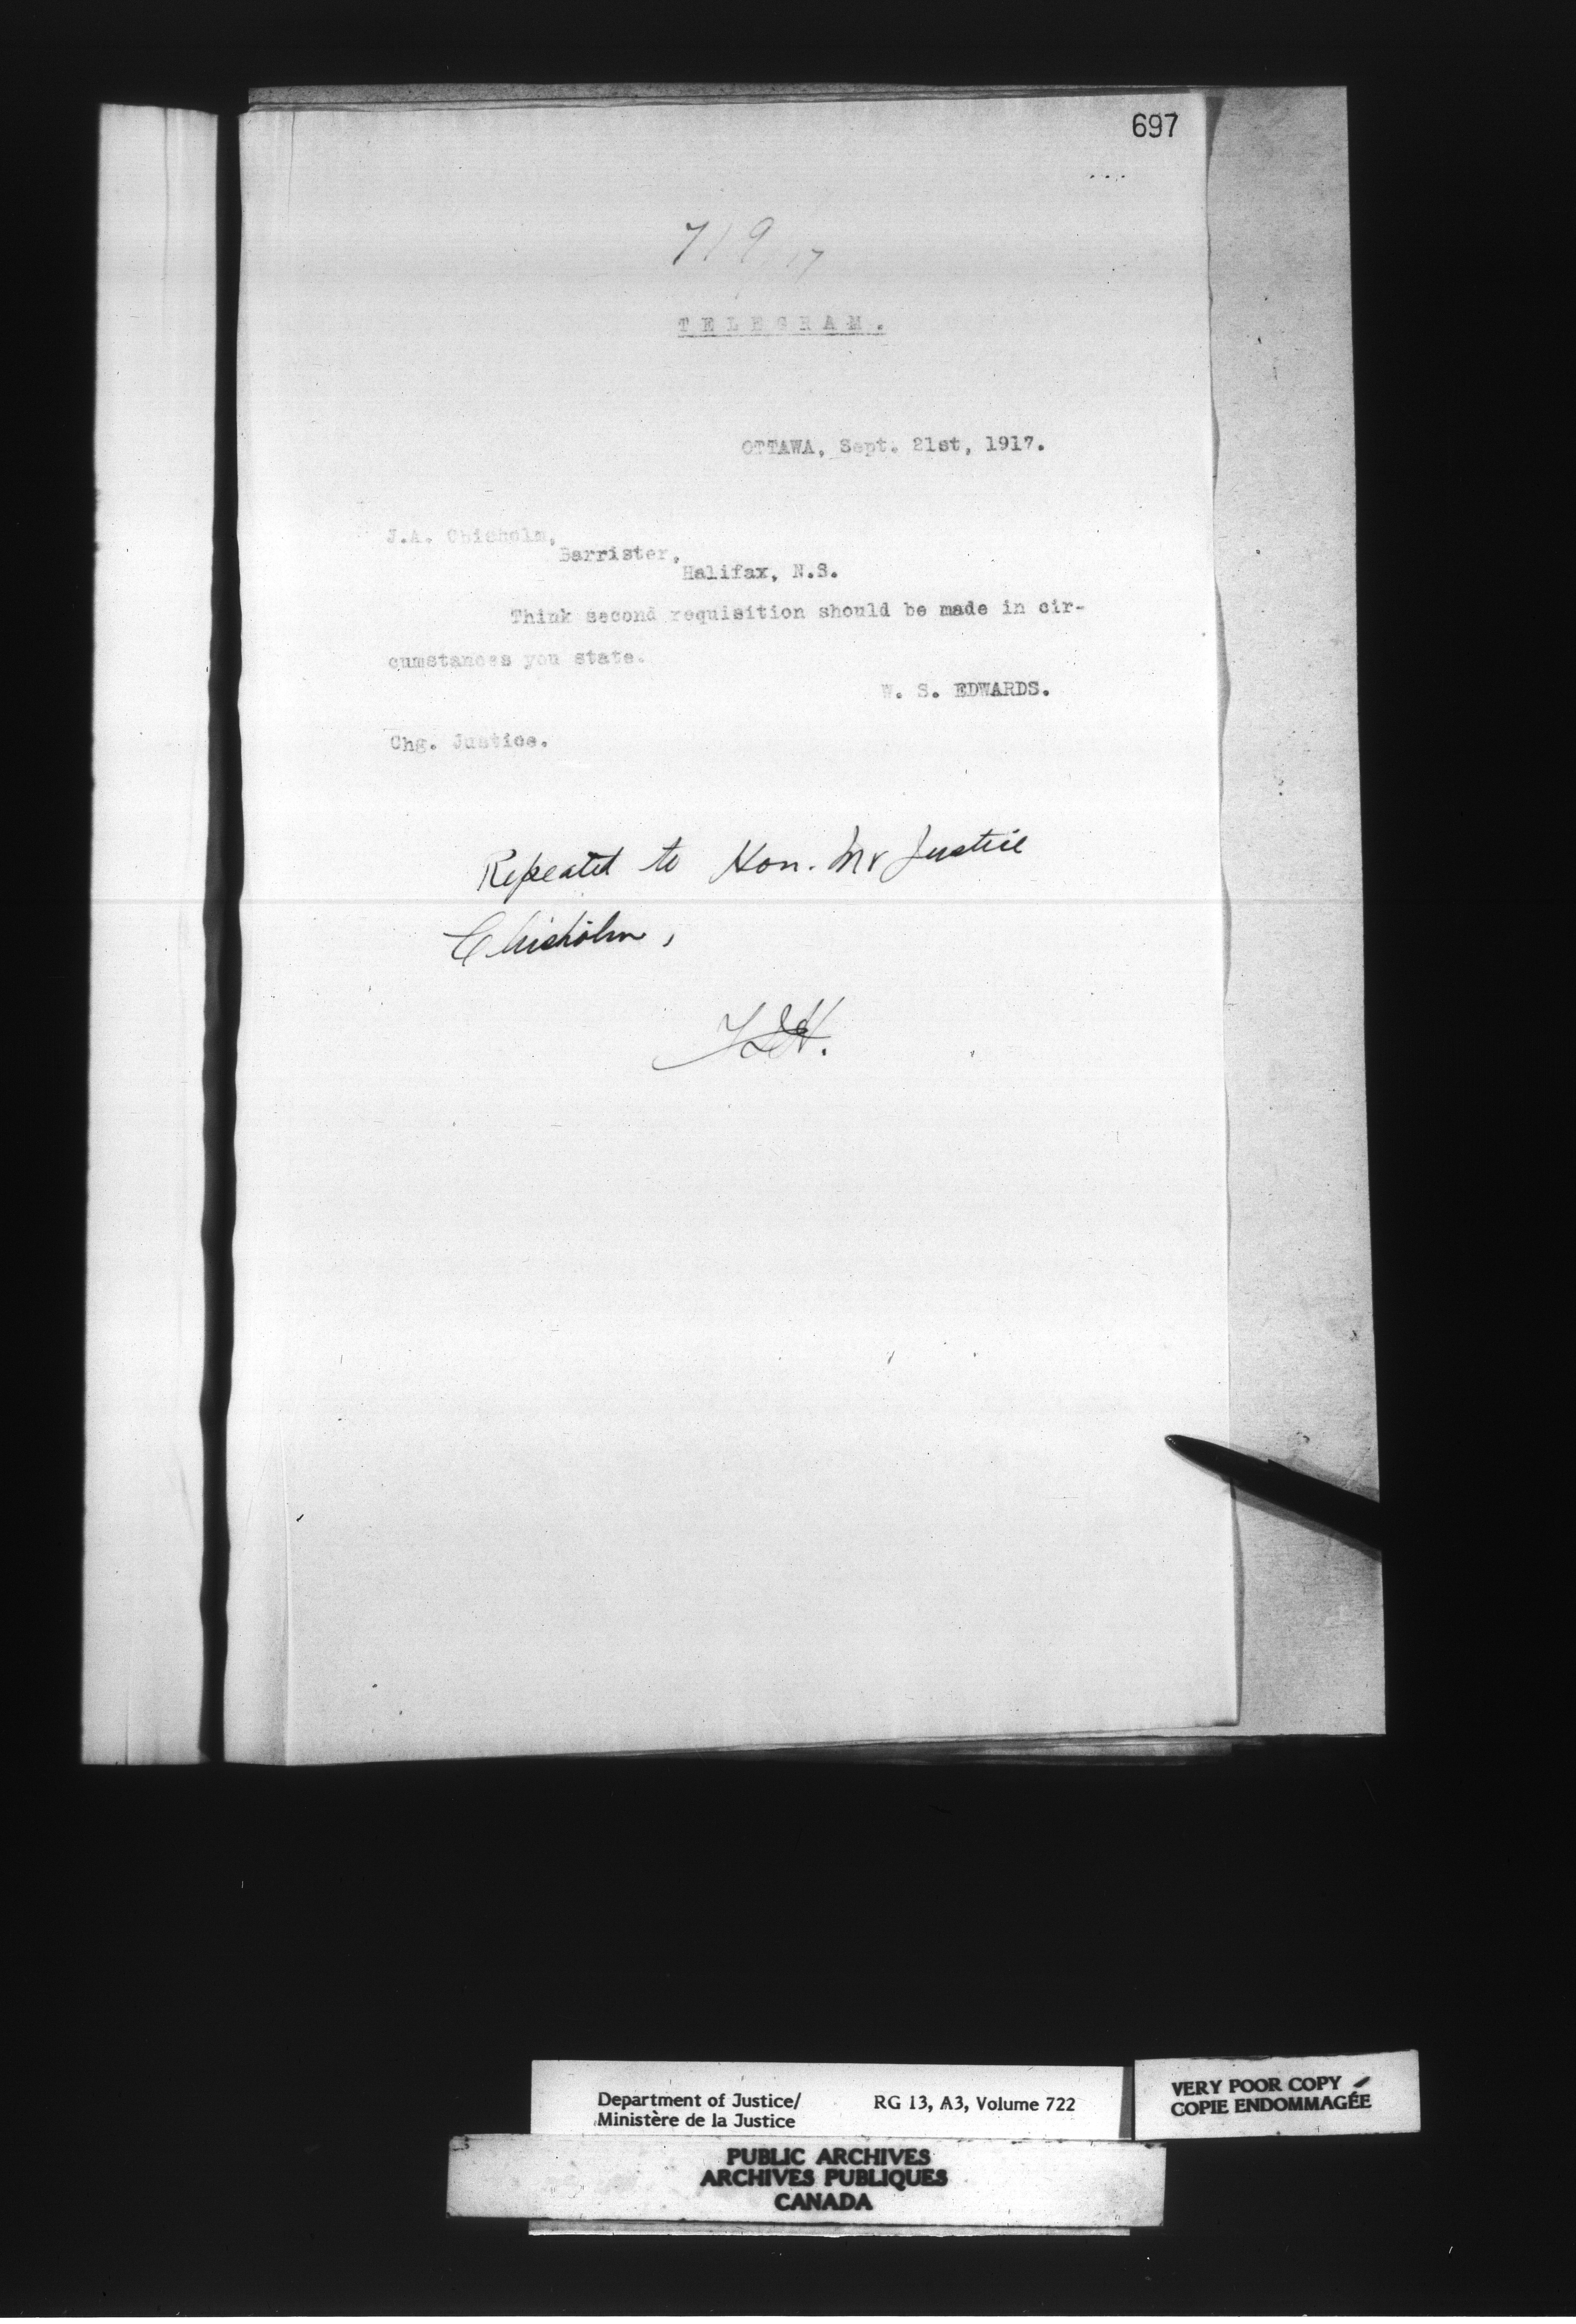 697
719/17
TELEGRAM.
OTTAWA, Sept. 21st, 1917.
J.A. Chisholm,
Barrister,
Halifax, N.S.
Think second requisition should be made in cir-
cumstances you state.
W. S. EDWARDS.
Chg. Justice.
Repeated to Hon. Mr Justice
Chisholm,
Department of Justice/
Ministère de la Justice
RG 13, A3, Volume 722
VERY POOR COPY
COPIE ENDOMMAGÉE
PUBLIC ARCHIVES
ARCHIVES PUBLIQUES
CANADA